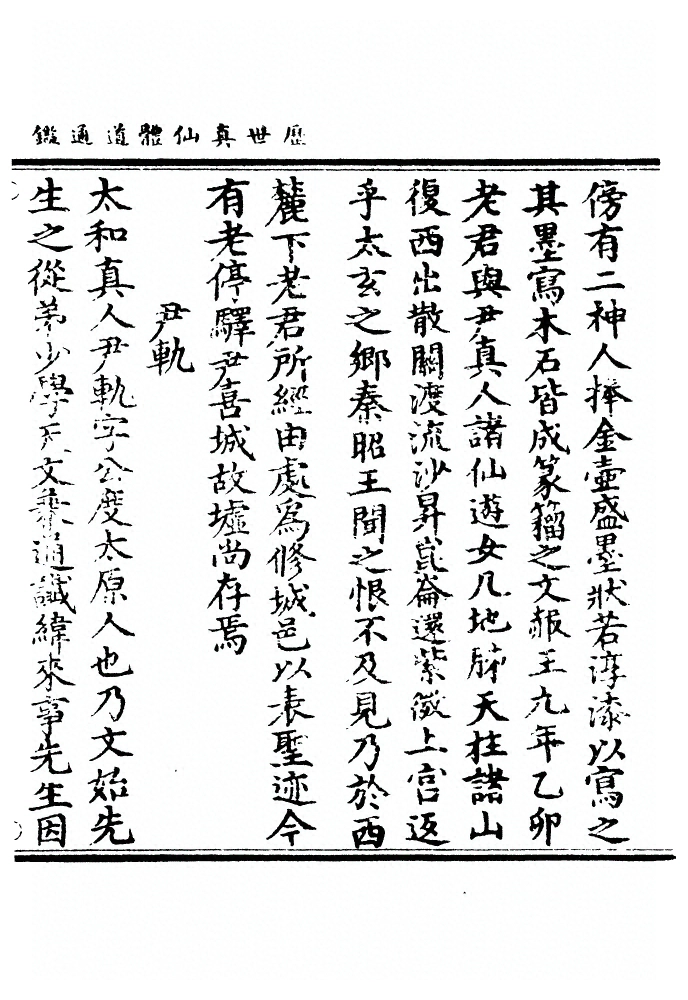 歷世真仙體道通鑑
傍有二神人捧金壺盛墨狀若淳漆以寫之
其墨寫木石皆成篆籀之文赧王九年乙卯
老君與尹真人諸仙遊女几地肺天柱諸山
復西出散關渡流沙昇崑崙還紫微上宮返
乎太玄之鄉秦昭王聞之恨不及見乃於西
麓下老君所經由處為修城邑以表聖迹今
有老停驛尹喜城故墟尚存焉
尹軌
太和真人尹軌字公度太原人也乃文始先
生之從弟少學天文兼通讖緯來事先生因